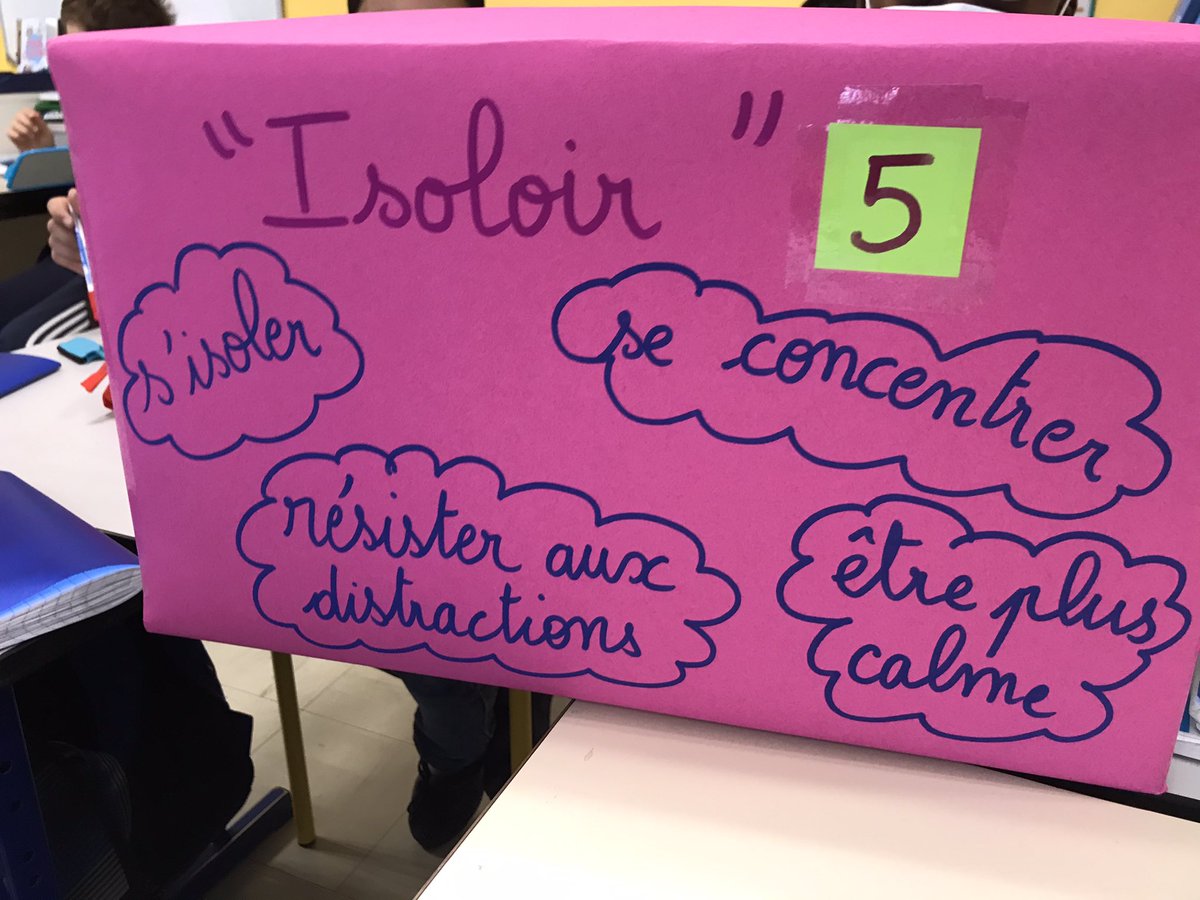 "Isoloir" 5
s'isoler
se concentrer
résister aux
distractions
être plus
calme